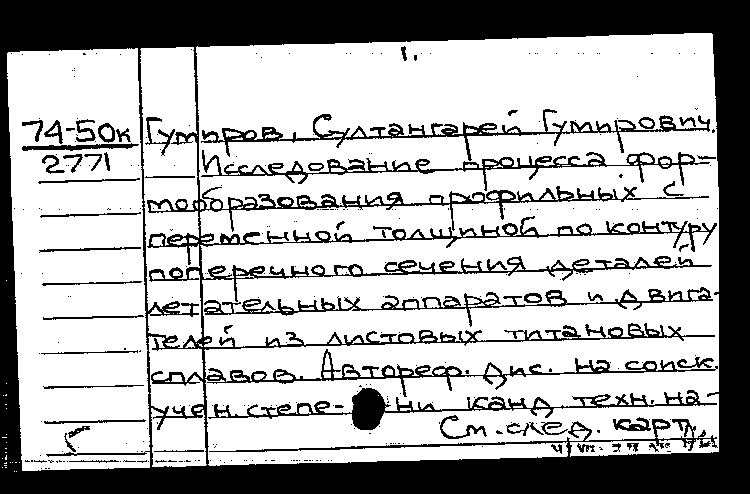 1.
74-50к Гумиров, Султангарей Гумирович.
2771 Исследование процесса фор=
мообразования профильных с
переменной толщиной по контуру
поперечного сечения деталей
летательных аппаратов и двига-
телей из листовых титановых
сплавов. Автореф. дис. на соиск.
учен. степе- ни канд. техн. на-
См. след. карт.